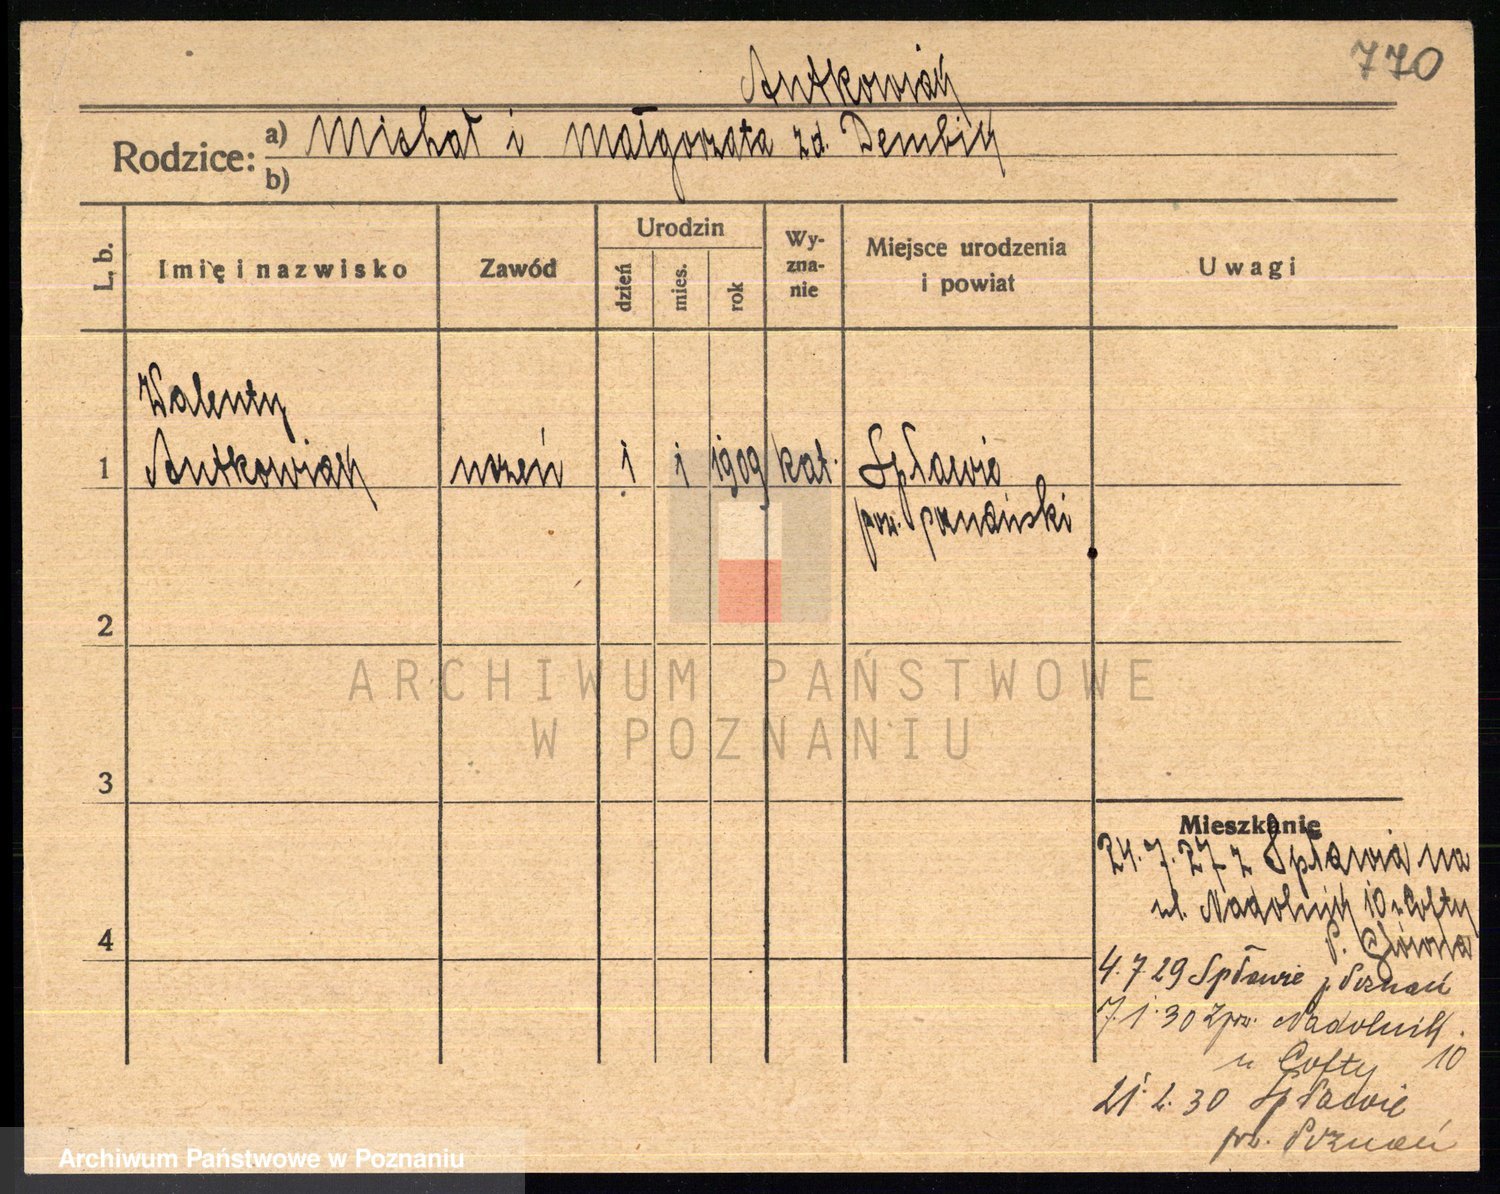 770
Antkowiak
Rodzice: a) Michał i Małgorzata zd. Dembik
b)
L. b.
Imię i nazwisko
Zawód
Urodzin
dzień
mies.
rok
Wy-
zna-
nie
Miejsce urodzenia
i powiat
Uwagi
Walenty
1 Antkowiak uczeń 1 1 1909 kat. Spławie
pow. poznański
2
3
4
ARCHIWUM PAŃSTWOWE
W POZNANIU
Mieszkanie
24.7.27 z Spławia na
ul. Nadolnik 10 u Cofty
P. Główna
4.7.29 Spławie p Poznań
7.1.30 Zpow. Nadolnik
u Cofty 10
21.2.30 Spławie
pow. Poznań
Archiwum Państwowe w Poznaniu